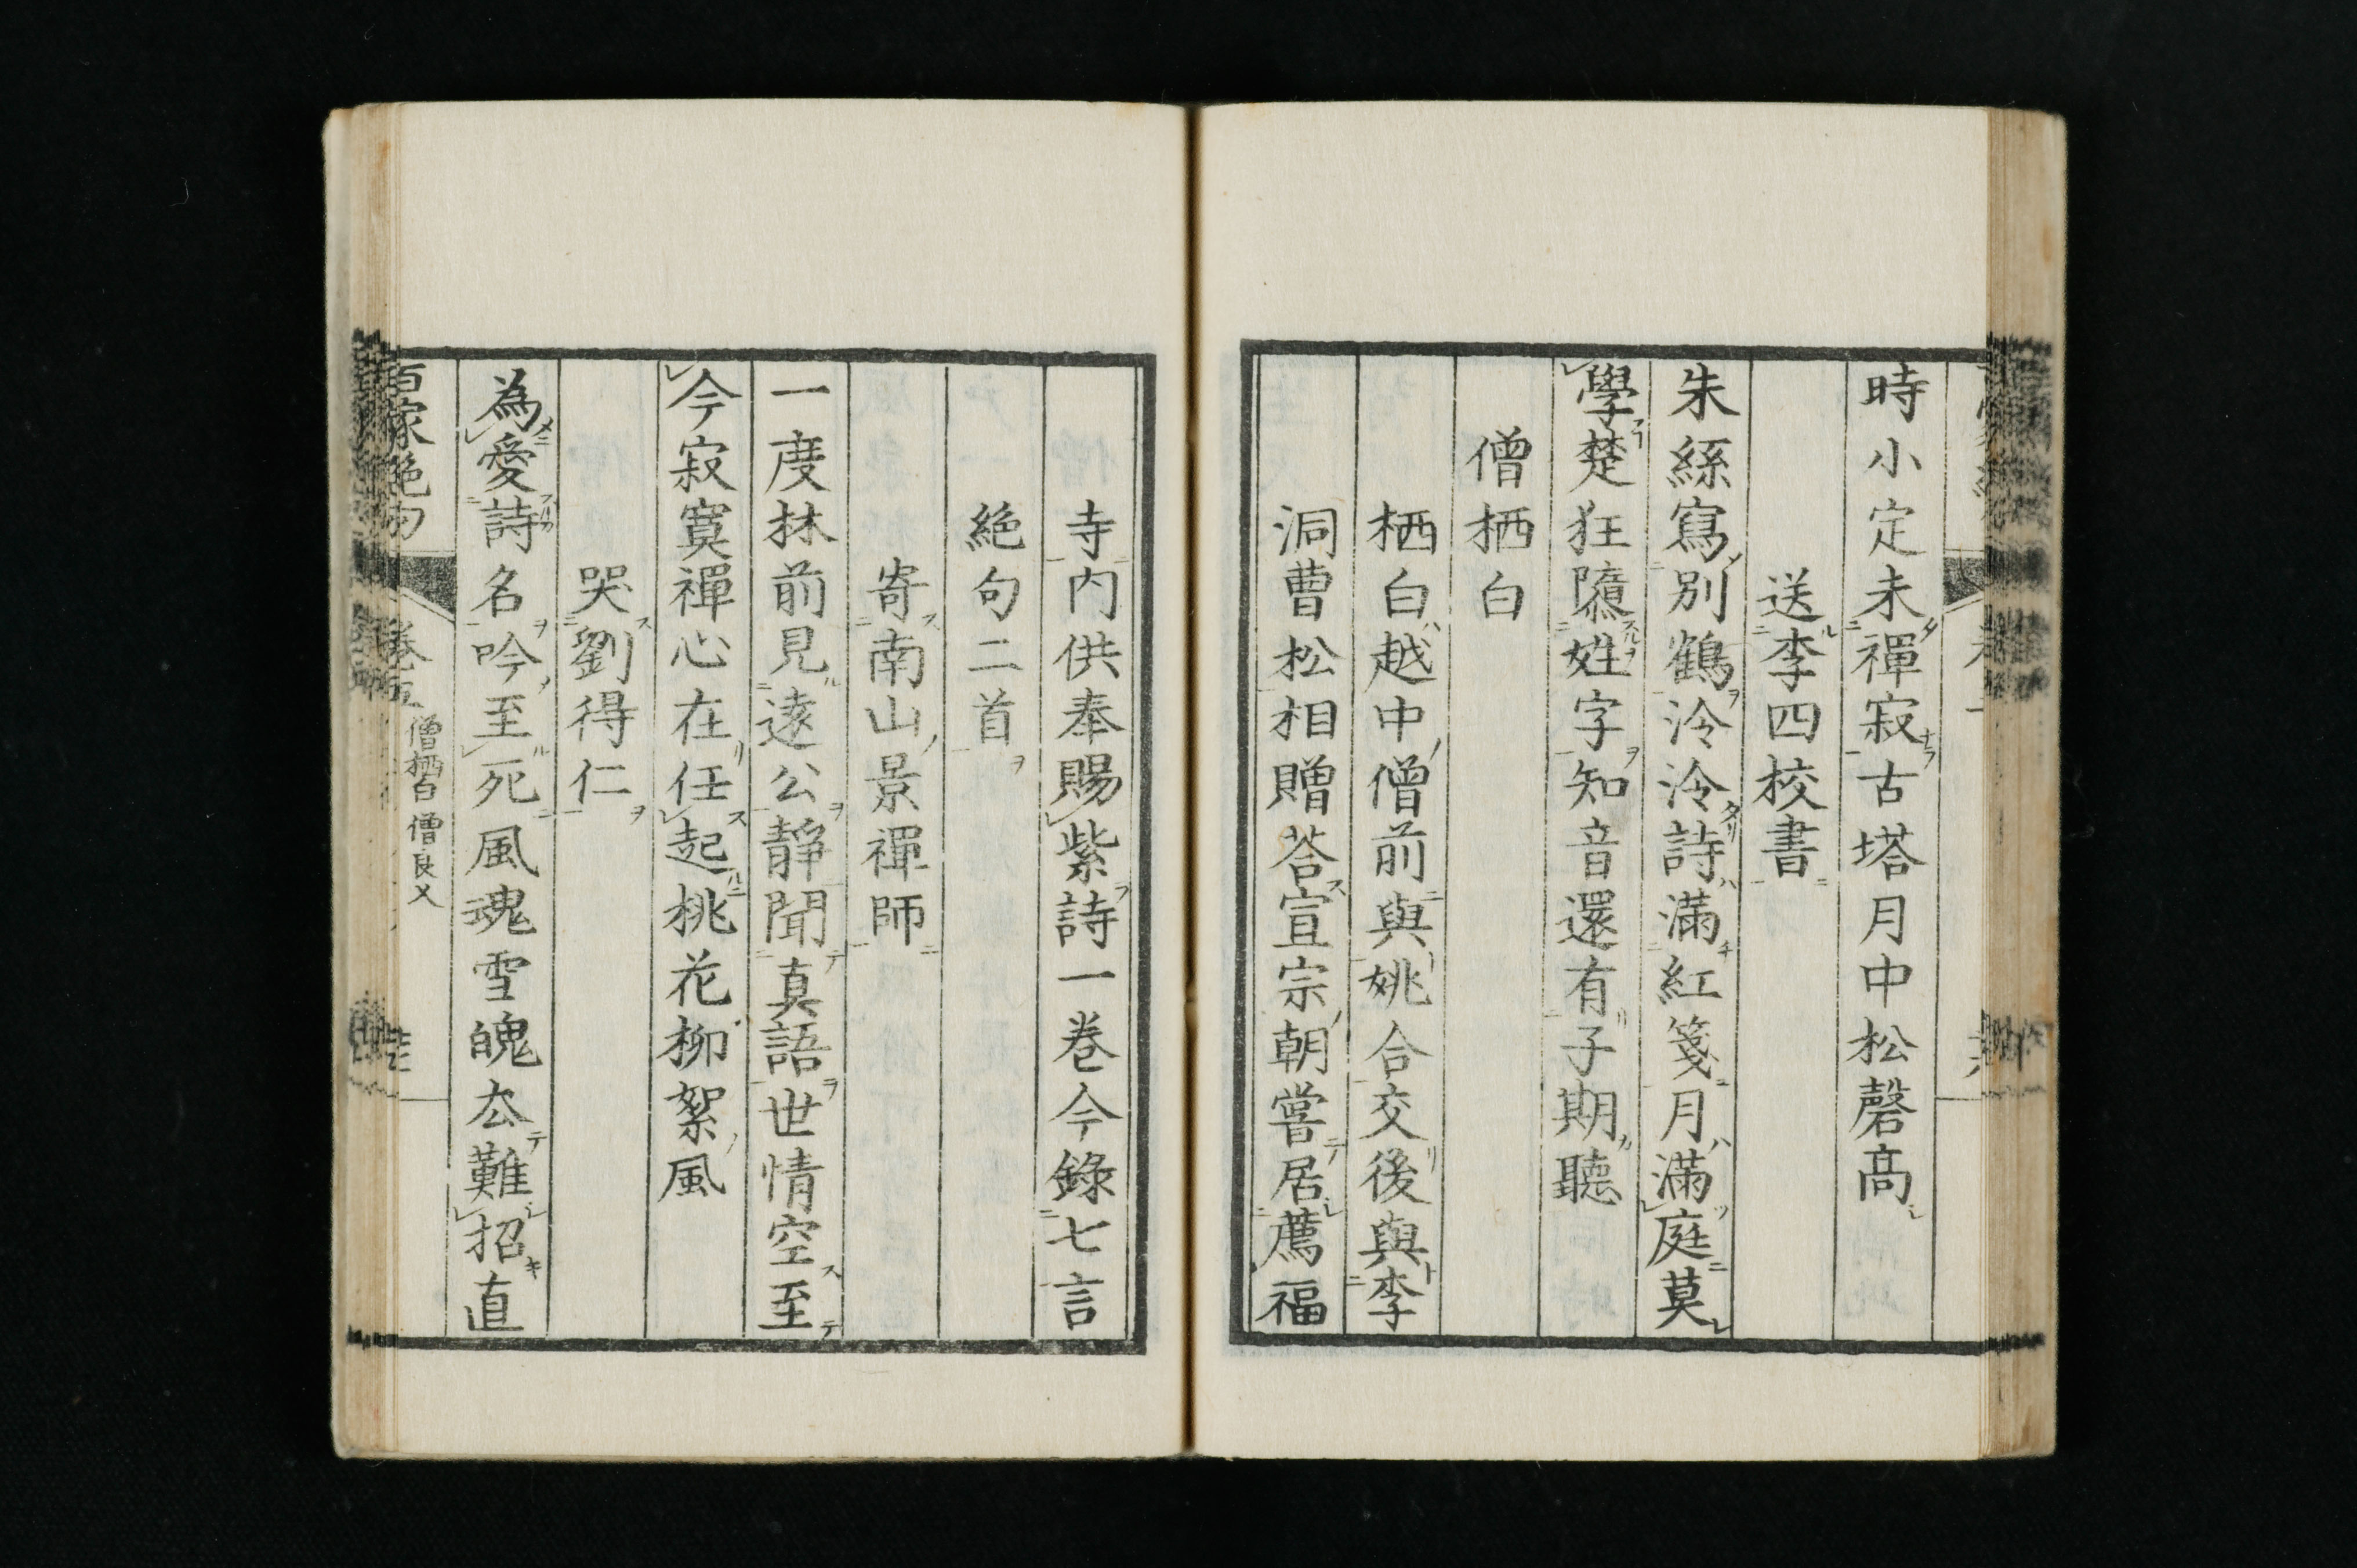 時小定未禪寂古塔月中松磬高
送李四校書
朱絲寫別鶴泠泠詩滿紅箋月滿庭莫
學楚狂隳姓字知音還有子期聽
僧栖白
栖白越中僧前與姚合交後與李
洞曹松相贈荅宣宗朝嘗居薦福
寺内供奉賜紫詩一巻今錄七言
絶句二首
寄南山景禪師
一度林前見遠公靜聞真語世情空至
今寂寞禪心在任起桃花柳絮風
哭劉得仁
為愛詩名吟至死風魂雪魄去難招直
百家絶句
卷五
僧栖白 僧良乂